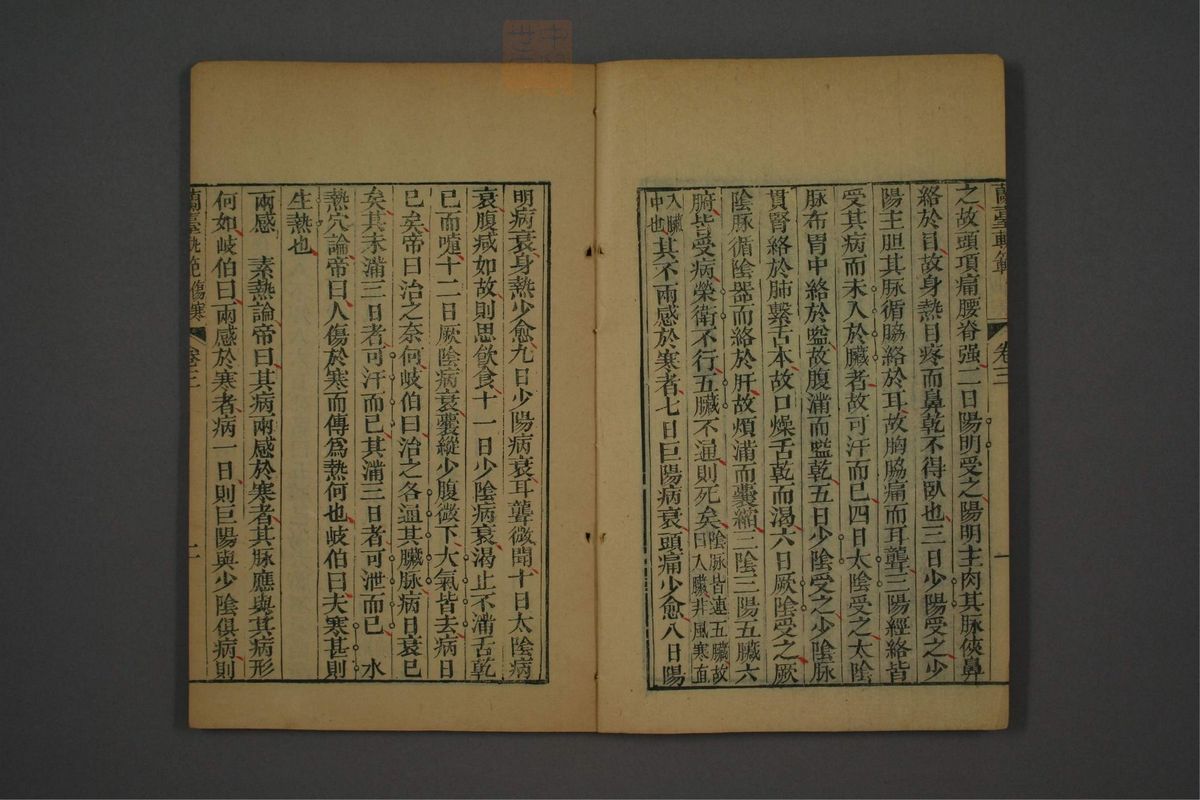 蘭臺軌範
卷三
一
之故頭項痛腰脊强二日陽明受之陽明主肉其脉俠鼻
絡於目故身熱目疼而鼻乾不得臥也三日少陽受之少
陽主胆其脉循脇絡於耳故胸脇痛而耳聾三陽經絡皆
受其病而未入於臟者故可汗而已四日太陰受之太陰
脉布胃中絡於嗌故腹滿而嗌乾五日少陰受之少陰脉
貫腎絡於肺繫舌本故口燥舌乾而渴六日厥陰受之厥
陰脉循陰器而絡於肝故煩滿而囊縮三陰三陽五臟六
腑皆受病榮衛不行五臟不通則死矣陰脉皆連五臟故曰入臟非風寒直
入臟中也其不兩感於寒者七日巨陽病衰頭痛少愈八日陽
明病衰身熱少愈九日少陽病衰耳聾微聞十日太陰病
衰腹减如故則思飲食十一日少陰病衰渴止不滿舌乾
已而嚏十二日厥陰病衰囊縱少腹微下大氣皆去病日
已矣帝曰治之奈何岐伯曰治之各通其臟脉病日衰已
矣其未滿三日者可汗而已其滿三日者可泄而已 水
熱穴論帝曰人傷於寒而傳爲熱何也岐伯曰夫寒甚則
生熱也
兩感 素熱論帝曰其病兩感於寒者其脉應與其病形
何如岐伯曰兩感於寒者病一日則巨陽與少陰俱病則
蘭臺軌範傷寒
卷三
二